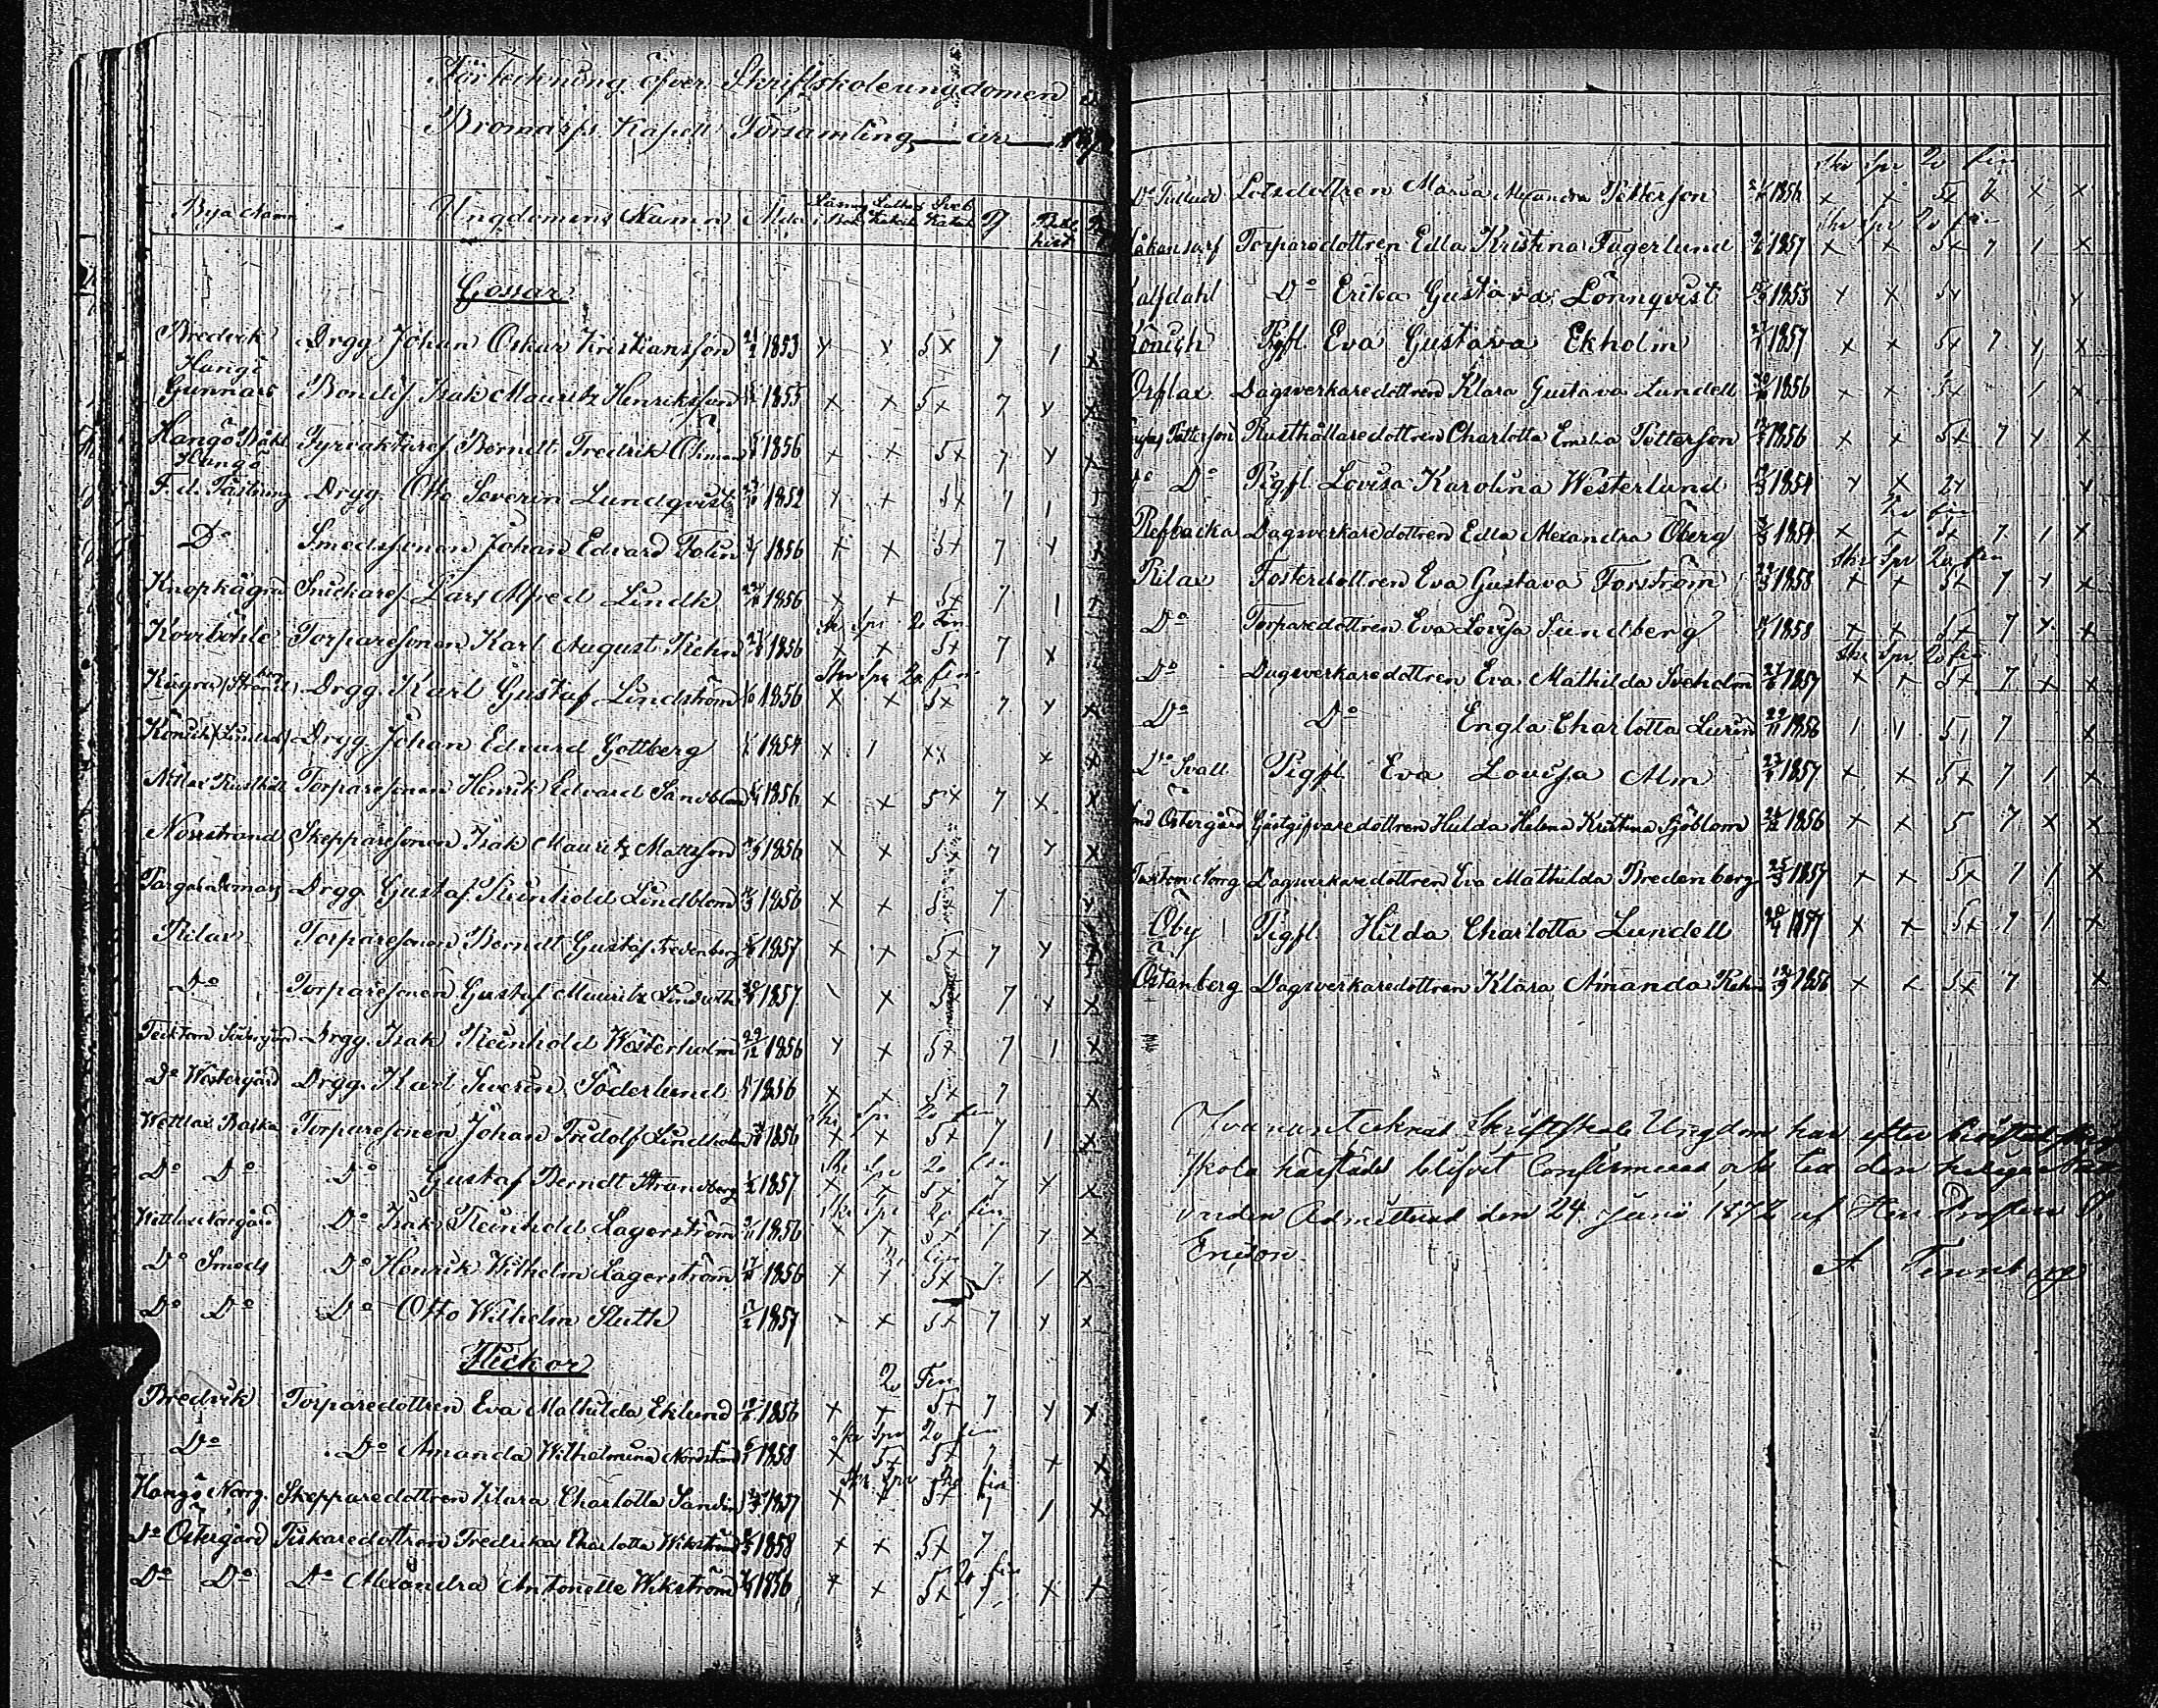 Förteckning öfver Skriftskoleungdomen i
Bromarfs Kapell Församling — år — 1872
Bya Namn Ungdomens Namn Ålder Läsning i Bok Luthers Katech Sveb Katech Bibl hist
Gossar
Bredvik Drgg Johan Oskar Kristiansson 1853 x x 5x 7 1 x
Hangö
Gunnars Bondes. Isak Mauritz Henriksson 1855 x x 5x 7 x x
Hangö Båks Fyrvaktares. Berndt Fredrik Öhman 1856 x x 5x 7 x x
Hangö
F. d. Fästning Drgg. Otto Severin Lundqvist 1852 x x 5x 7 1 x
Do Smedssonen Johan Edvard Folin 1856 x x 5x 7 x x
Knopkägra Snickares. Lars Alfred Lindh 1856 x x 5x 7 1 x
skr Spr 2v Fin
Korsböhle Torparesonen Karl August Rehn 1856 x x 5x 7 x
Skr Spr 2v fin
Kägra Drgg. Karl Gustaf Lindström 1856 x x 5x 7 x x
Drgg. Johan Edvard Gottberg 1854 x 1 xx x x
Torparesonen Henrik Edvard Sandblom 1856 x x 5x 7 x x
Norrstrand Skepparesonen Isak Mauritz Mattsson 1856 x x 5x 7 x x
Drgg Gustaf Reinhold Lindblom 1856 x x 5x 7 x
Rilax Torparesonen Berndt Gustaf 1857 x x 5x 7 x x
Do Torparesonen Gustaf Mauritz 1857 x 5x 7 x x
Södergård Drgg. Isak Reinhold Westerholm 29/12 1856 x x 5x 7 1 x
Do Westergård Drgg. Karl Severin Söderlund 1856 x x 5x 7 x
Skr Spr 2v fin
Wettlax Backa Torparesonen Johan Fridolf Lindholm 1856 x x 5x 7 1 x
Skr Spr 2v fin
Do Do Do Gustaf Berndt Strandberg 1857 x x 5x 7 x x
Skr Spr 2v fin
Wettlax Norrgård Do Isak Reinhold Lagerström 1856 x x 5x 7 x x
2v fin
Do Smeds Do Henrik Wilhelm Lagerström 1856 x x 5x 7 1 x
Do Do Do Otto Wilhelm Sluth 1857 x x 5x 7 x x
Flickor
2v Fin
Bredvik Torparedottren Eva Mathilda Eklund 1856 x x 5x 7 x x
skr Spr 2v fin
Do Do Amanda Wilhelmina 1858 x 5x 5x 7 x x
Skr Spr 2v fin
Hangö Norrg. Skepparedottren Klara Charlotta Sandin 1857 x x 5x 7 1 x
Do Östergård Fiskaredottren Fredrika Charlotta Wikström 1858 x x 5x 7
2v fin
Do Do Do Alexandra Antonette Wikström 1856 x x 5x 7 x x
skr Spr 2v fin
Do Lotsdottren Maria Alexandra Petterson 1856 x x 5x 7 x x
skr Spr 2v fin
Håkansarf Torparedottren Edla Kristina Fagerlund 1857 x x 5x 7 1 x
Kalfdahl Do Erika Gustava Lönnqvist 1853 x x 5x 1 x
Könich Pigfl. Eva Gustava Ekholm 1857 x x 5x 7 x x
Orslax Dagsverkaredottren Klara Gustava Lundell 1856 x x 5x 1 x
Rusthållaredottren Charlotta Emilia Petterson 1856 x x 5x 7 x x
Do Do Pigfl Lovisa Karolina Westerlund 1854 x x 2x x
2v fin
Refbacka Dagsverkaredottren Edla Alexandra Öberg 1854 x x 5x 7 1 x
Skr Spr 2v fin
Rilax Fosterdottren Eva Gustava Forström 1858 x x 5x 7 x x
Do Torparedottren Eva Lovisa Sundberg 1858 x x 5x 7 x x
Skr Spr 2v fin
Do Dagsverkaredottren Eva Mathilda Sveholm 1857 x x 5x 7 x x
Do Do Engla Charlotta 29/11 1856 1 1 51 7 x
Do Svall Pigfl. Eva Lovisa Alm 1857 x x 5x 7 1 x
Östergård Gästgifvaredottren Hulda Helena Kristina Sjöblom 1856 x x 5 7 x x
Norrg Dagsverkaredottren Eva Mathilda Bredenberg 25/3 1857 x x 5x 7 1 x
Öby Pigfl Hilda Charlotta Lundell 1857 x x 5x 7 1 x
Östanberg Dagsverkaredottren Klara Amanda Rehn 1856 x x 5x 7 x
Ofvanantecknad Skriftskole Ungdom har efter
skola härstädes blifvit Confirmerad och till den heliga
Admitterad den 24 Juni 1872 af Herr Prosten
A